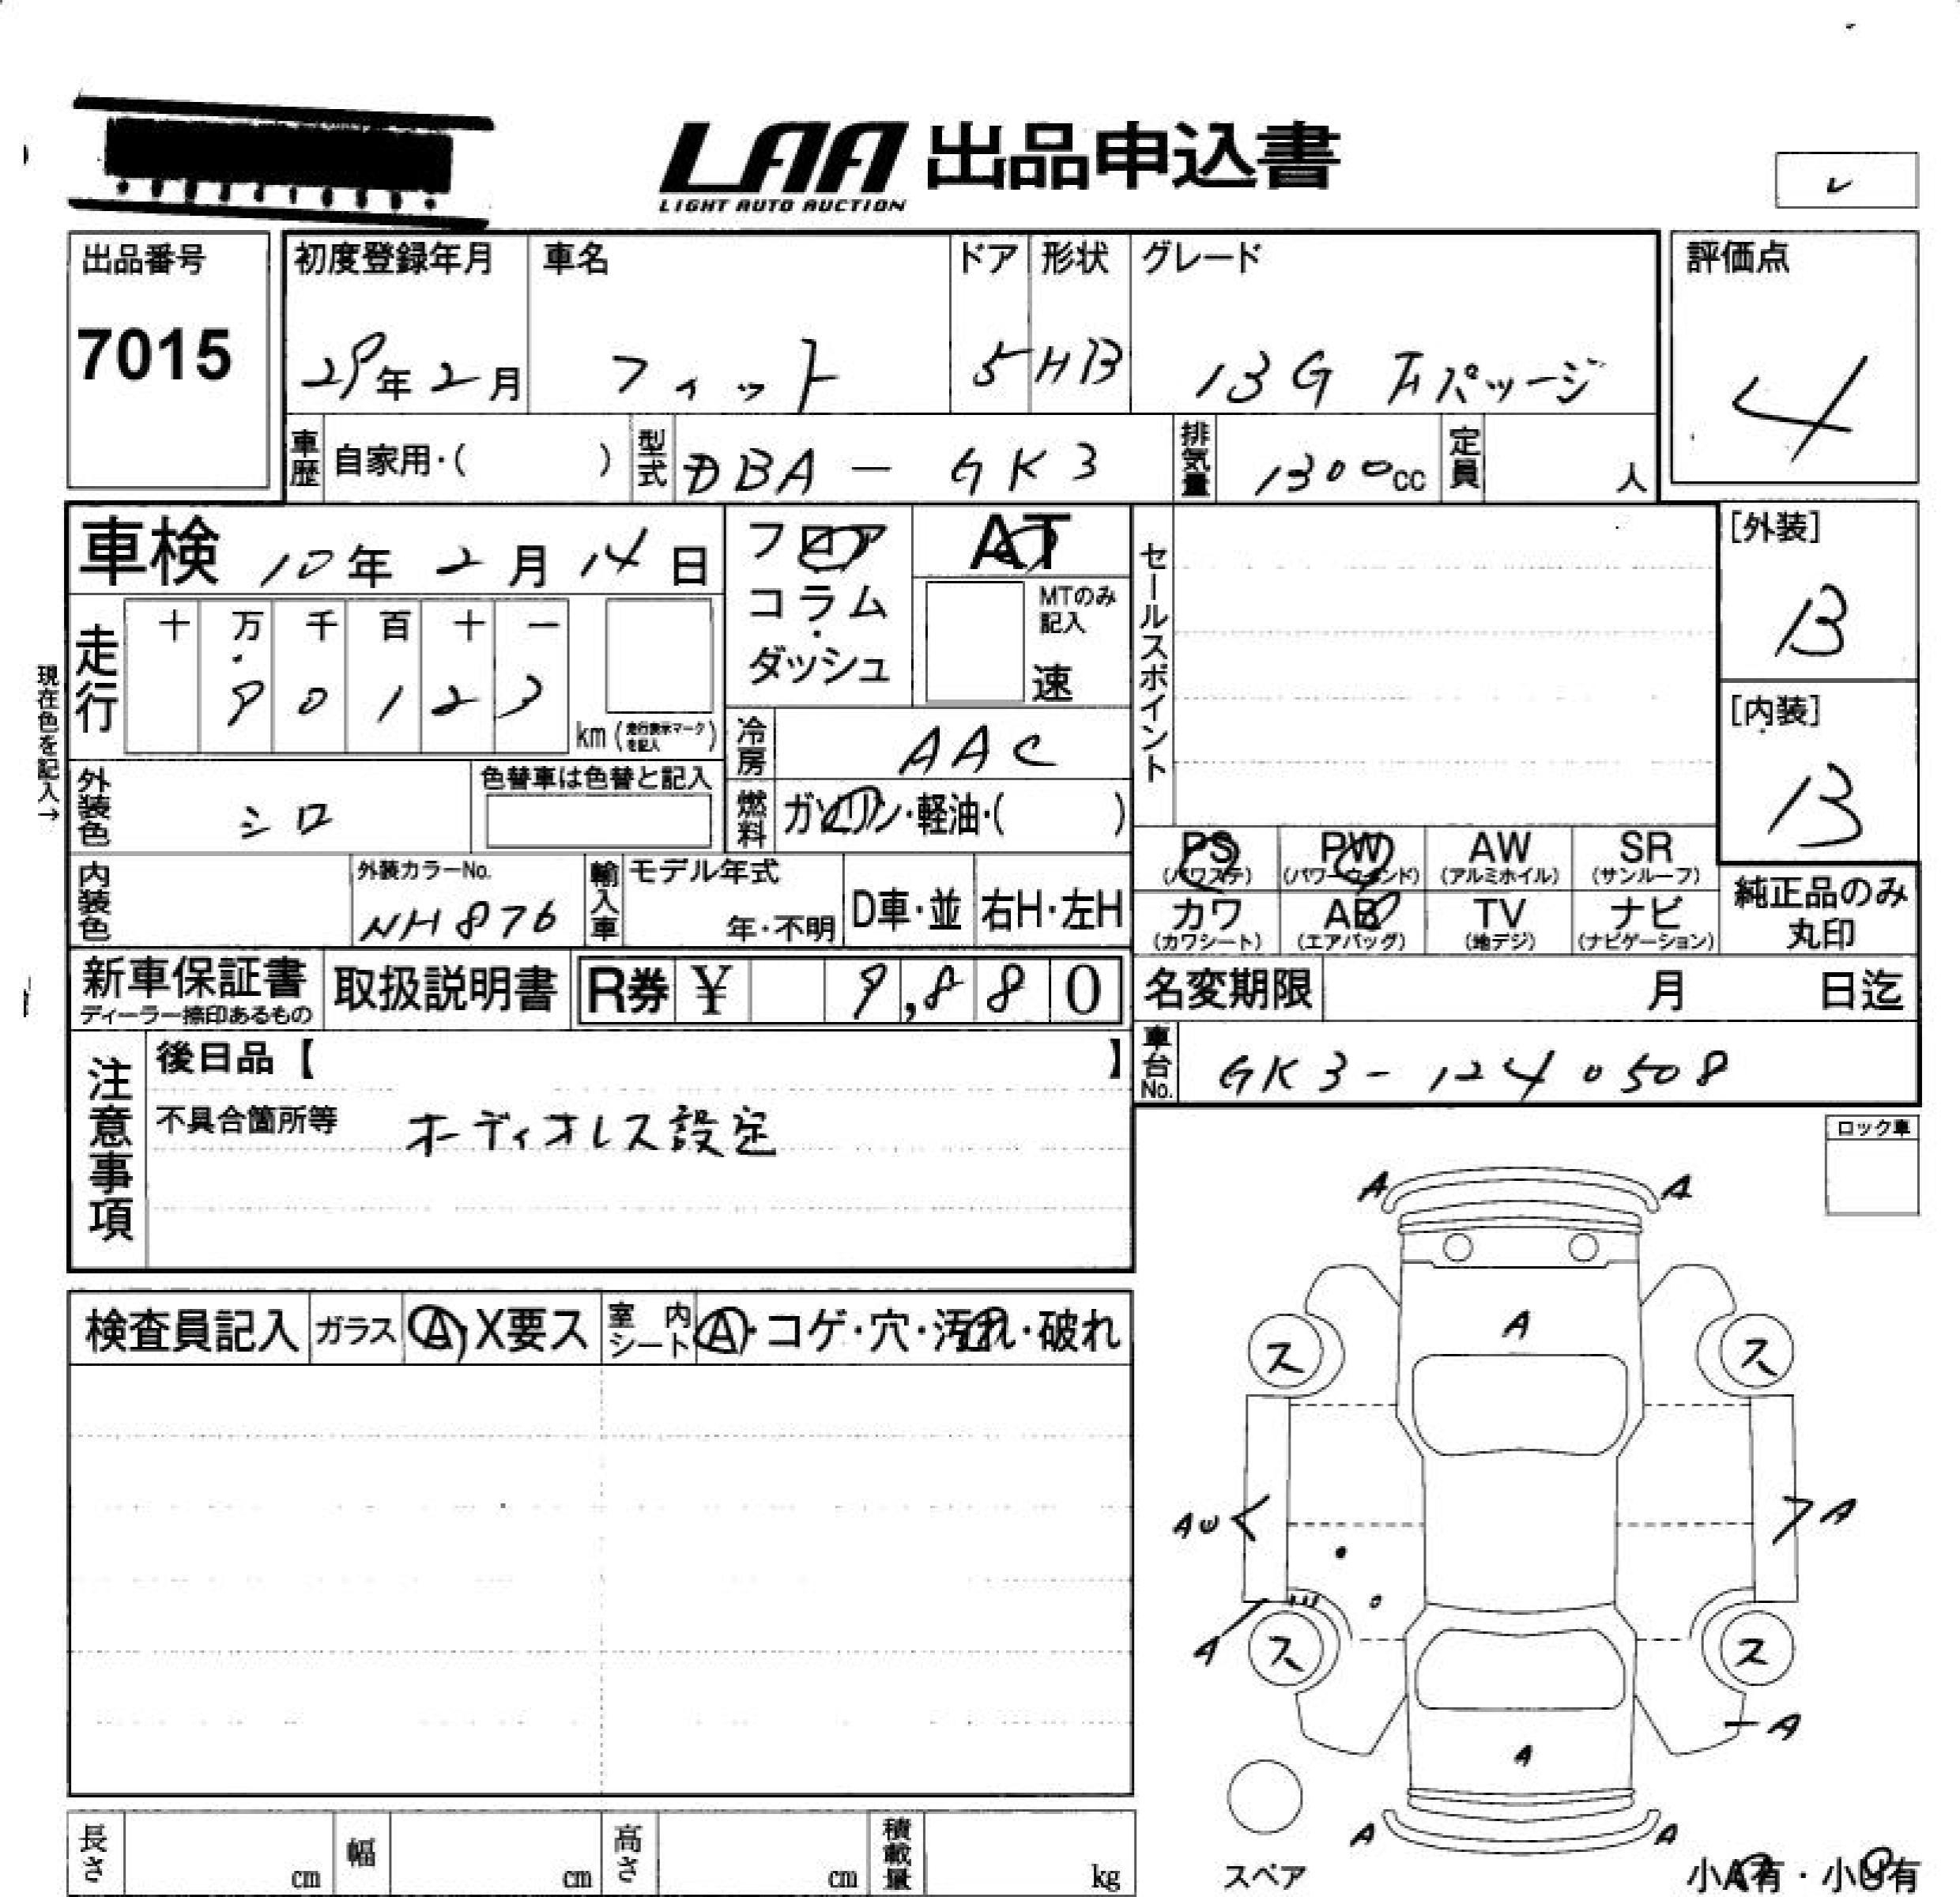 LAA 出品申込書
LIGHT AUTO AUCTION
レ
出品番号
7015
初度登録年月
29年2月
車名
フィット
ドア
5
形状
HB
グレード
13G Fパッージ
評価点
4
車歴 自家用・( )
型式 DBA - GK3
排気量 1300cc
定員 人
車検 10年 2月 14日
フロア
コラム
・
ダッシュ
AT
MTのみ
記入
速
セールスポイント
[外装]
B
[内装]
B
現在色を記入→
走行
十 万 千 百 十 一
9 0 1 2 3
km (走行表示マークを記入)
冷房 AAC
外装色 シロ
色替車は色替と記入
燃料 ガソリン・軽油・( )
内装色
外装カラーNo.
NH876
輸入車
モデル年式
年・不明
D車・並
右H・左H
PS
(パワステ)
PW
(パワーウインド)
AW
(アルミホイル)
SR
(サンルーフ)
カワ
(カワシート)
AB
(エアバッグ)
TV
(地デジ)
ナビ
(ナビゲーション)
純正品のみ
丸印
新車保証書
ディーラー捺印あるもの
取扱説明書
R券 ¥ 9,880
名変期限 月 日迄
車台No. GK3-1240508
注意事項
後日品【 】
不具合箇所等 オーディオレス設定
ロック車
検査員記入
ガラス Ⓐ・X要ス
室内シート Ⓐ・コゲ・穴・汚れ・破れ
A A
A
ス ス
AW A
A
ス ス
A
A
A A
スペア
小A有・小U有
長さ cm
幅 cm
高さ cm
積載量 kg